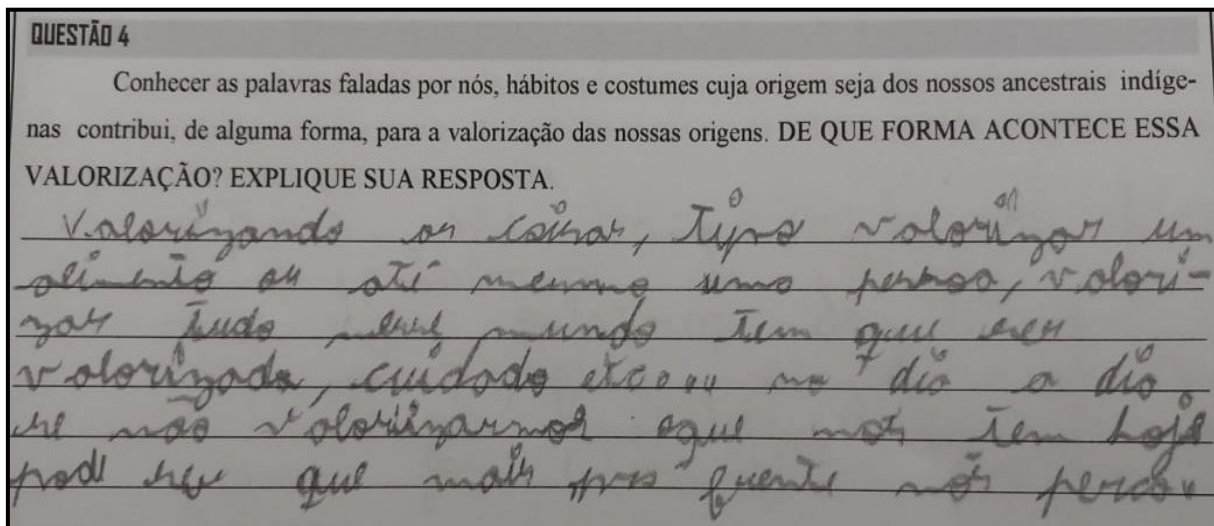 QUESTÃO 4
Conhecer as palavras faladas por nós, hábitos e costumes cuja origem seja dos nossos ancestrais indíge-
nas contribui, de alguma forma, para a valorização das nossas origens. DE QUE FORMA ACONTECE ESSA
VALORIZAÇÃO? EXPLIQUE SUA RESPOSTA.
Valorizando as coisas, tipo valorizar um
alimento ou até mesmo uma pessoa, valori-
zar tudo nesse mundo tem que ser
valorizado, cuidado etc no dia a dia
se não valorizarmos oque nós tem hoje
pode ser que mais pra frente nós